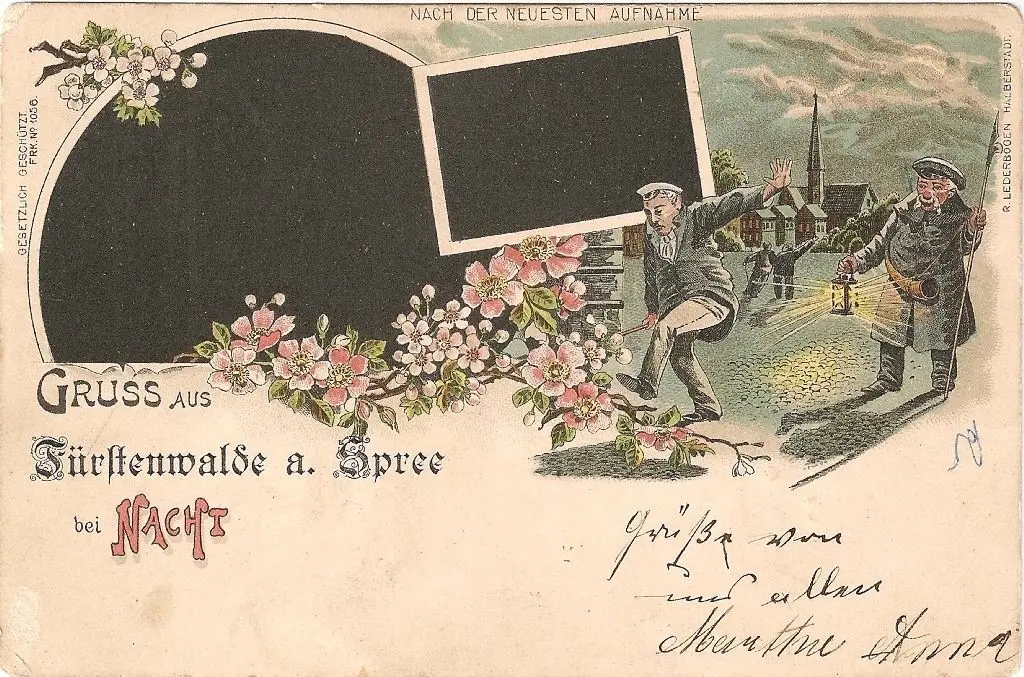 NACH DER NEUESTEN AUFNAHME
GESETZLICH GESCHÜTZT.
FRK. No 1056.
R. LEDERBOGEN HALBERSTADT.
GRUSS AUS
Fürstenwalde a. Spree
bei NACHT
Grüße von
uns allen
Marthe Anna